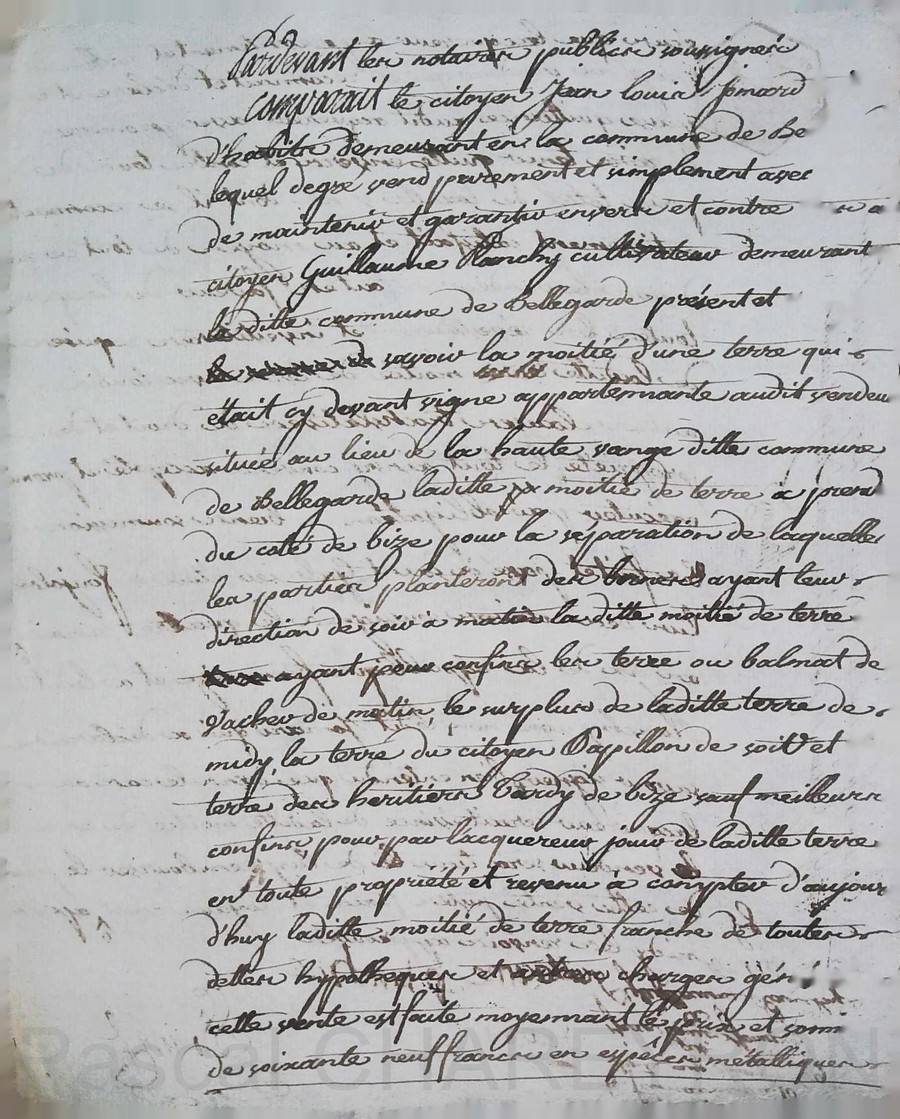 Pardevant les notaires publics soussignés
comparait le citoyen Jean louis
demeurant en la commune de Be
lequel degré vend purement et simplement avec
de maintenir et garantir envers et contre
citoyen Guillaume Planchy cultivateur demeurant
ditte commune de Bellegarde présent et
savoir la moitié d'une terre qui
était cy devant vigne appartennante audit vendeu
située au lieu de la haute vange ditte commune
de Bellegarde laditte moitié de terre a prend
du coté de bize pour la séparation de laquelle
les parties planteront des bornes ayant leur
direction de soir à matin la ditte moitié de terre
ayant pour confins les terre ou balmat de
Vacher de matin, le surplus de laditte terre de
midy, la terre du citoyen Papillon de soir et
terre des heritiers Tardy de bize sauf meilleurs
confins, pour par l'acquereur jouir de laditte terre
en toute propriété et revenu à compter d'aujour
d'huy laditte moitié de terre franche de toutes
dettes hypotheques et charges gén
cette vente est faite moyennant le prix et som
de soixante neuf francs en espéces métalliques
Pascal CHAR